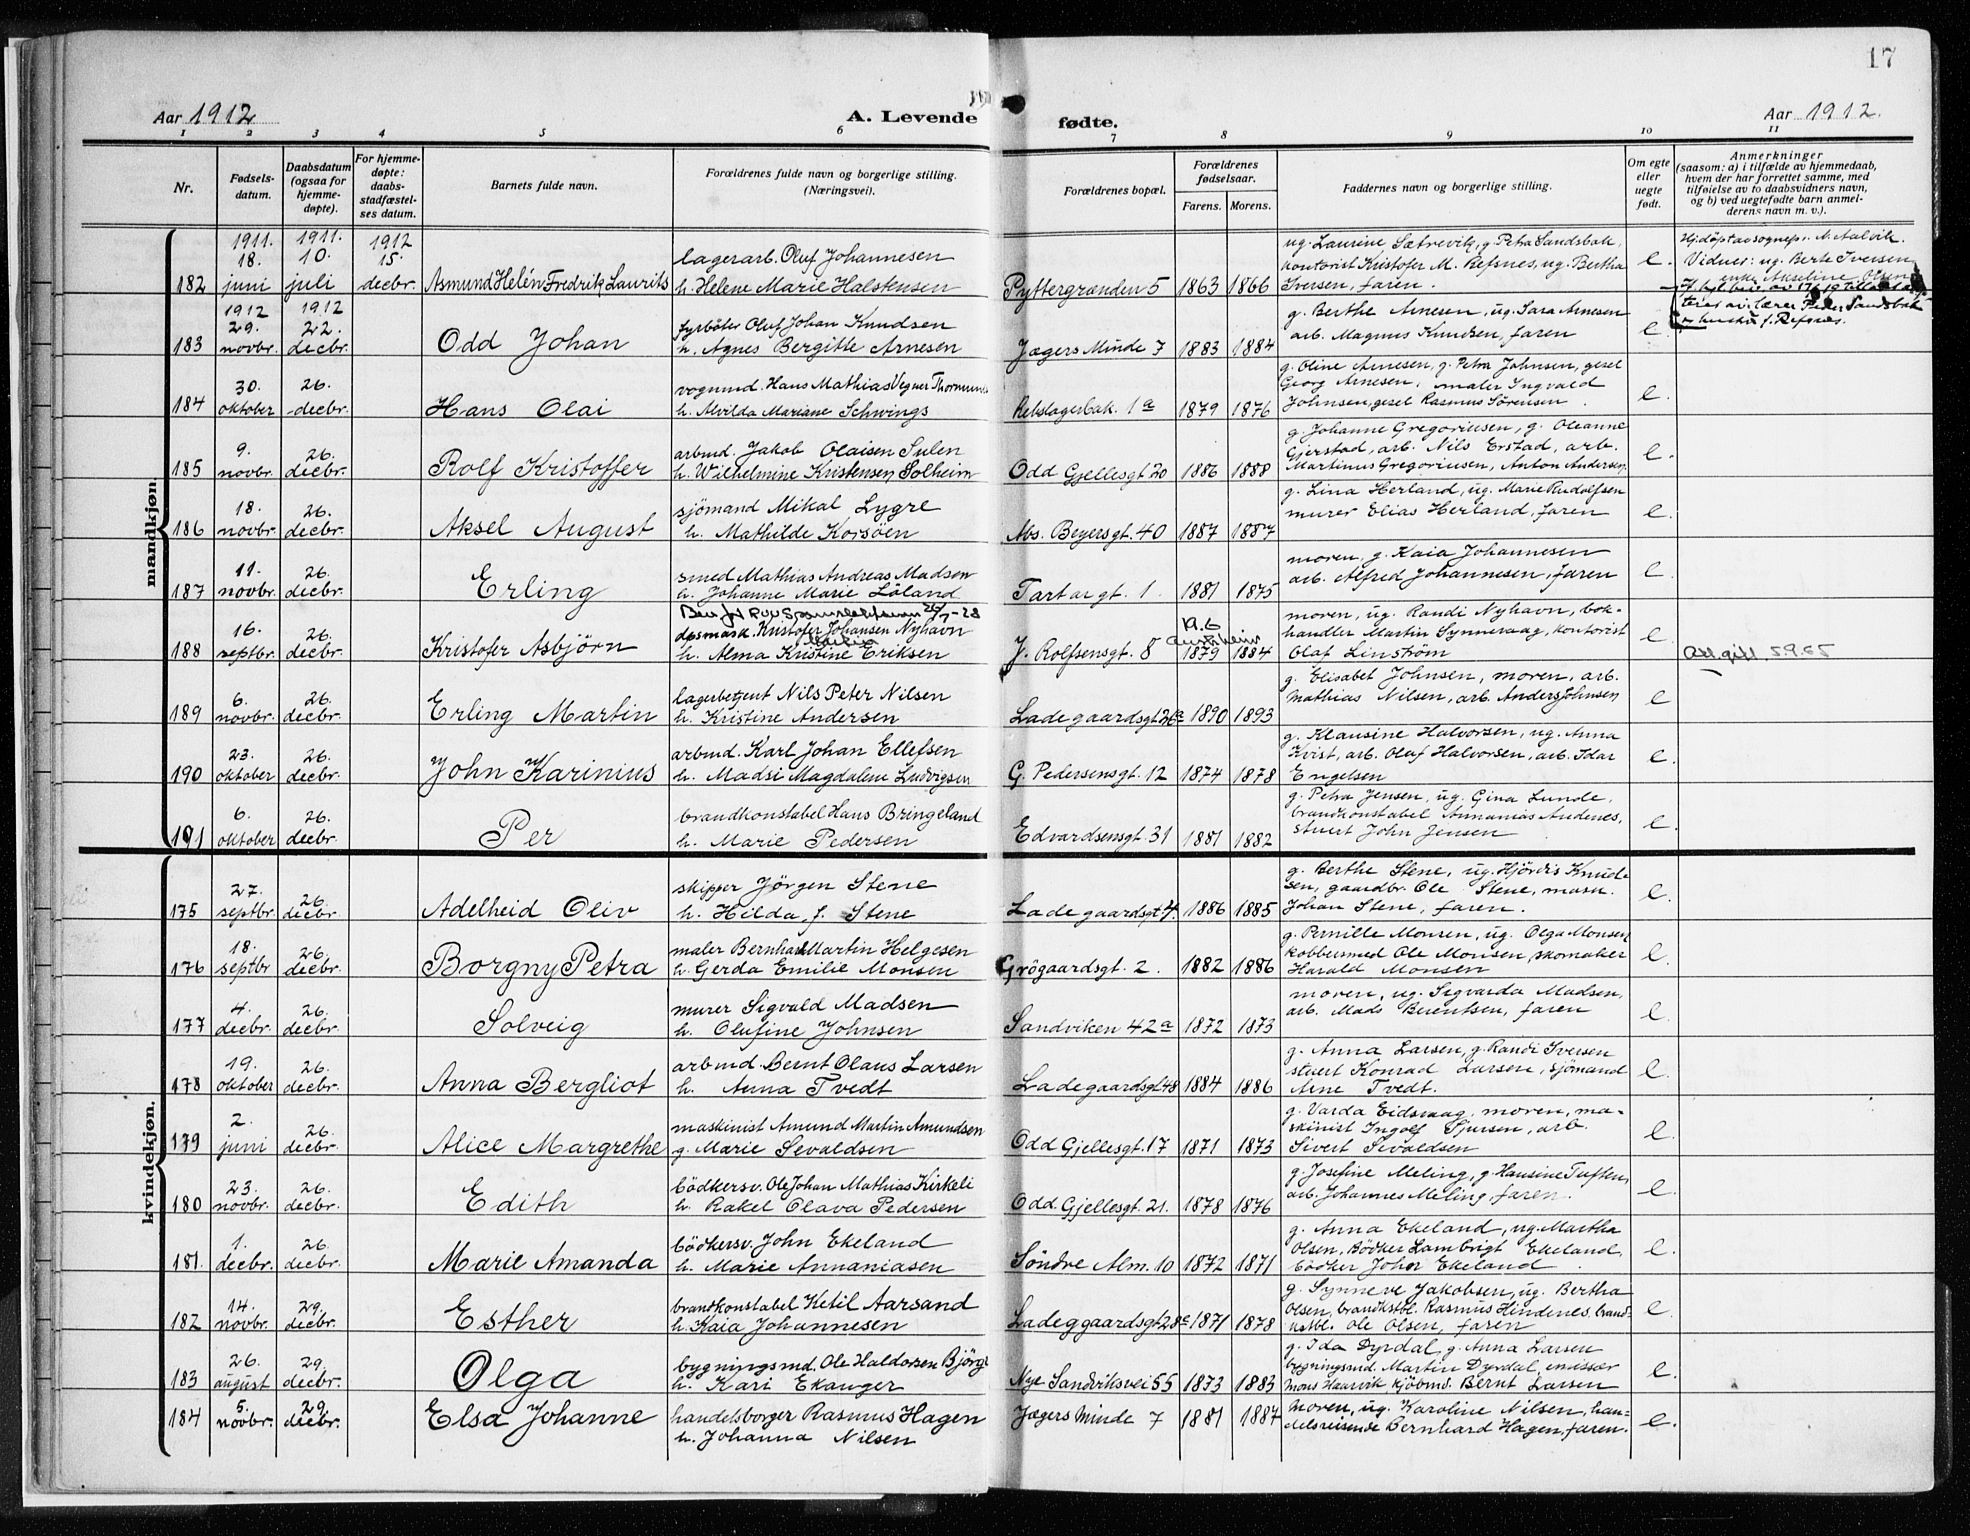 17
Aar 1912
A. Levende
fødte.
Aar 1912.
1 2 3 4 5 6 7 8 9 10 11
Nr.
Fødsels-
datum.
Daabsdatum
(ogsaa for
hjemme-
døpte).
For hjemme-
døpte:
daabs-
stadfæstel-
ses datum.
Barnets fulde navn.
Forældrenes fulde navn og borgerlige stilling.
(Næringsvei).
Forældrenes bopæl.
Forældrenes
fødselsaar.
Farens. Morens.
Faddernes navn og borgerlige stilling.
Om egte
eller
uegte
født.
Anmerkninger
(saasom: a) i tilfælde av hjemmedaab,
hvem der har forrettet samme, med
tilføielse av to daabsvidners navn,
og b) ved uegtefødte barn anmel-
derens navn m. v.).
mandkjøn.
1911. 1911. 1912
18. 10. 15.
182 juni juli decbr. Asmund Helén Fredrik Laurits
lagerarb. Oluf Johannesen
h. Helene Marie Halstensen
Pyttergrænden 5 1863 1866
ug. Laurine Sætrevik, g. Petra Sandsbak,
kontorist Kristofer M. Refsnes, ug. Bertha
Iversen, faren. e.
Hjdöpt av sognepr. N. Aalvik.
Vidner: ug. Berte Iversen
enke Akseline Olsen
1912 1912
29. 22.
183 novbr. decbr. Odd Johan
fyrböter Oluf Johan Knudsen
h. Agnes Bergitte Arnesen
Jægers Minde 7 1883 1884
g. Berthe Arnesen, ug. Sara Arnesen
arb. Magnus Knudsen, faren e
30. 26.
184 oktober decbr. Hans Olai
vognmd. Hans Mathias Vegner Thormund
h. Alvilda Mariane Schwings
Rebslagerbak. 1a 1879 1876
g. Oline Arnesen, g. Petra Johnsen, gesel
Georg Arnesen, maler Ingvald
Johnsen, gesel Rasmus Sörensen. e.
9. 26.
185 novbr. decbr. Rolf Kristoffer
arbmd. Jakob Olaisen Sulen
h. Wilhelmine Kristensen Solheim
Odd Gjellesgt 20 1886 1888
g. Johanne Gregoriusen, g. Oleanne
Gjerstad, arb. Nils Erstad, arb.
Martinus Gregoriusen, Anton Andersen. e.
18. 26.
186 novbr. decbr. Aksel August
sjömand Mikal Lygre
h. Mathilde Korsöen
Abs. Beyersgt. 40 1887 1887
g. Lina Herland, ug. Marie Rudolfsen
murer Elias Herland, faren e.
11. 26.
187 novbr. decbr. Erling
smed Mathias Andreas Madsen
h. Johanne Marie Löland
Tartargt. 1. 1881 1875
moren, g. Kaia Johannesen
arb. Alfred Johannesen, faren e
16. 26.
188 septbr. decbr. Kristofer Asbjörn
dpsmask. Kristofer Johansen Nyhavn
h. Alma Kristine Eriksen
J. Rolfsensgt. 8 1879 1884
moren, ug. Randi Nyhavn, bok-
handler Martin Synnevaag, kontorist
Olaf Linström e
Att. gitt 5.9.65
6. 26.
189 novbr. decbr. Erling Martin
lagerbetjent Nils Peter Nilsen
h. Kristine Andersen
Ladegaardsgt 26a 1890 1893
g. Elisabet Johnsen, moren, arb.
Mathias Nilsen, arb. Anders Johnsen e
23. 26.
190 oktober decbr. John Karinius
arbmd. Karl Johan Ellefsen
h. Madsi Magdalene Ludvigsen
G. Pedersensgt. 12 1874 1878
g. Klausine Halvorsen, ug. Anna
Kvist, arb. Oluf Halvorsen, arb. Idar
Engelsen e.
6. 26.
191 oktober decbr. Per
brandkonstabel Hans Bringeland
h. Marie Pedersen
Edvardsensgt. 31 1881 1882
g. Petra Jensen, ug. Gina Lunde,
brandkonstabel Annanias Andenes,
stuert John Jensen e.
kvindekjøn.
27. 26.
175 septbr. decbr. Adelheid Oliv
skipper Jörgen Stene
h. Hilda, f. Stene
Ladegaardsgt 4. 1886 1885
g. Berthe Stene, ug. Hjördis Knud-
sen, gaardbr. Ole Stene, mask.
Johan Stene, faren. e.
18. 26.
176 septbr decbr. Borgny Petra
maler Bernhard Martin Helgesen
h. Gerda Emilie Monsen
Grögaardsgt. 2. 1882 1886
g. Pernille Monsen, ug. Olga Monsen
kobbersmed Ole Monsen, skomaker
Harald Monsen e.
4. 26.
177 decbr. decbr. Solveig
murer Sigvald Madsen
h. Olufine Johnsen
Sandviken 42a 1872 1873
moren, ug. Sigvarda Madsen,
arb. Mads Berentsen, faren e.
19. 26.
178 oktober decbr. Anna Bergliot
arbmd. Bernt Olaus Larsen
h. Anna Tvedt
Ladegaardsgt 48 1884 1886
g. Anna Larsen, g. Randi Iversen
stuert Konrad Larsen, sjömand
Arne Tvedt. e.
2. 26.
179 juni decbr. Alice Margrethe
maskinist Amund Martin Amundsen
g. Marie Sevaldsen
Odd Gjellesgt. 17 1871 1873
g. Varda Eidsvaag, moren, ma-
skinist Ingolf Sjursen, arb.
Sivert Sivaldsen e.
23. 26.
180 novbr. decbr. Edith
bödkersv. Ole Johan Mathias Kirkeli
h. Rakel Olava Pedersen
Odd. Gjellesgt. 21. 1878 1876
g. Josefine Meling, g. Hansine Tuften,
arb. Johannes Meling, faren. e
1. 26.
181. decbr. decbr. Marie Amanda
bödkersv. John Ekeland
h. Marie Annaniasen
Söndre Alm. 10 1872 1871
g. Anna Ekeland, ug. Martha
Olsen, Bödker Lambrigt Ekeland,
bödker Johan Ekeland. e.
14. 29.
182 novbr. decbr. Esther
brandkonstabel Ketil Aarsand
h. Kaia Johannesen
Ladeggaardsgt 28c 1871 1878
g. Synneve Jakobsen, ug. Bertha
Olsen, brandkstbl. Rasmus Hindenes, brand-
kstbl. Ole Olsen, faren e.
26. 29.
183 august decbr. Olga
bygningsmd. Ole Haldorsen Björge
h. Kari Ekanger
Nye Sandviksvei 55 1873 1883
g. Ida Dyrdal, g. Anna Larsen
bygningsmd. Martin Dyrdal, emissær
Mons Haarvik, kjöbmd. Bernt Larsen e.
5. 29.
184 novbr. decbr. Elsa Johanne
handelsborger Rasmus Hagen
h. Johanna Nilsen
Jægers Minde 7 1881 1887
Moren, ug. Karoline Nilsen, han-
delsreisende Bernhard Hagen, faren. e.